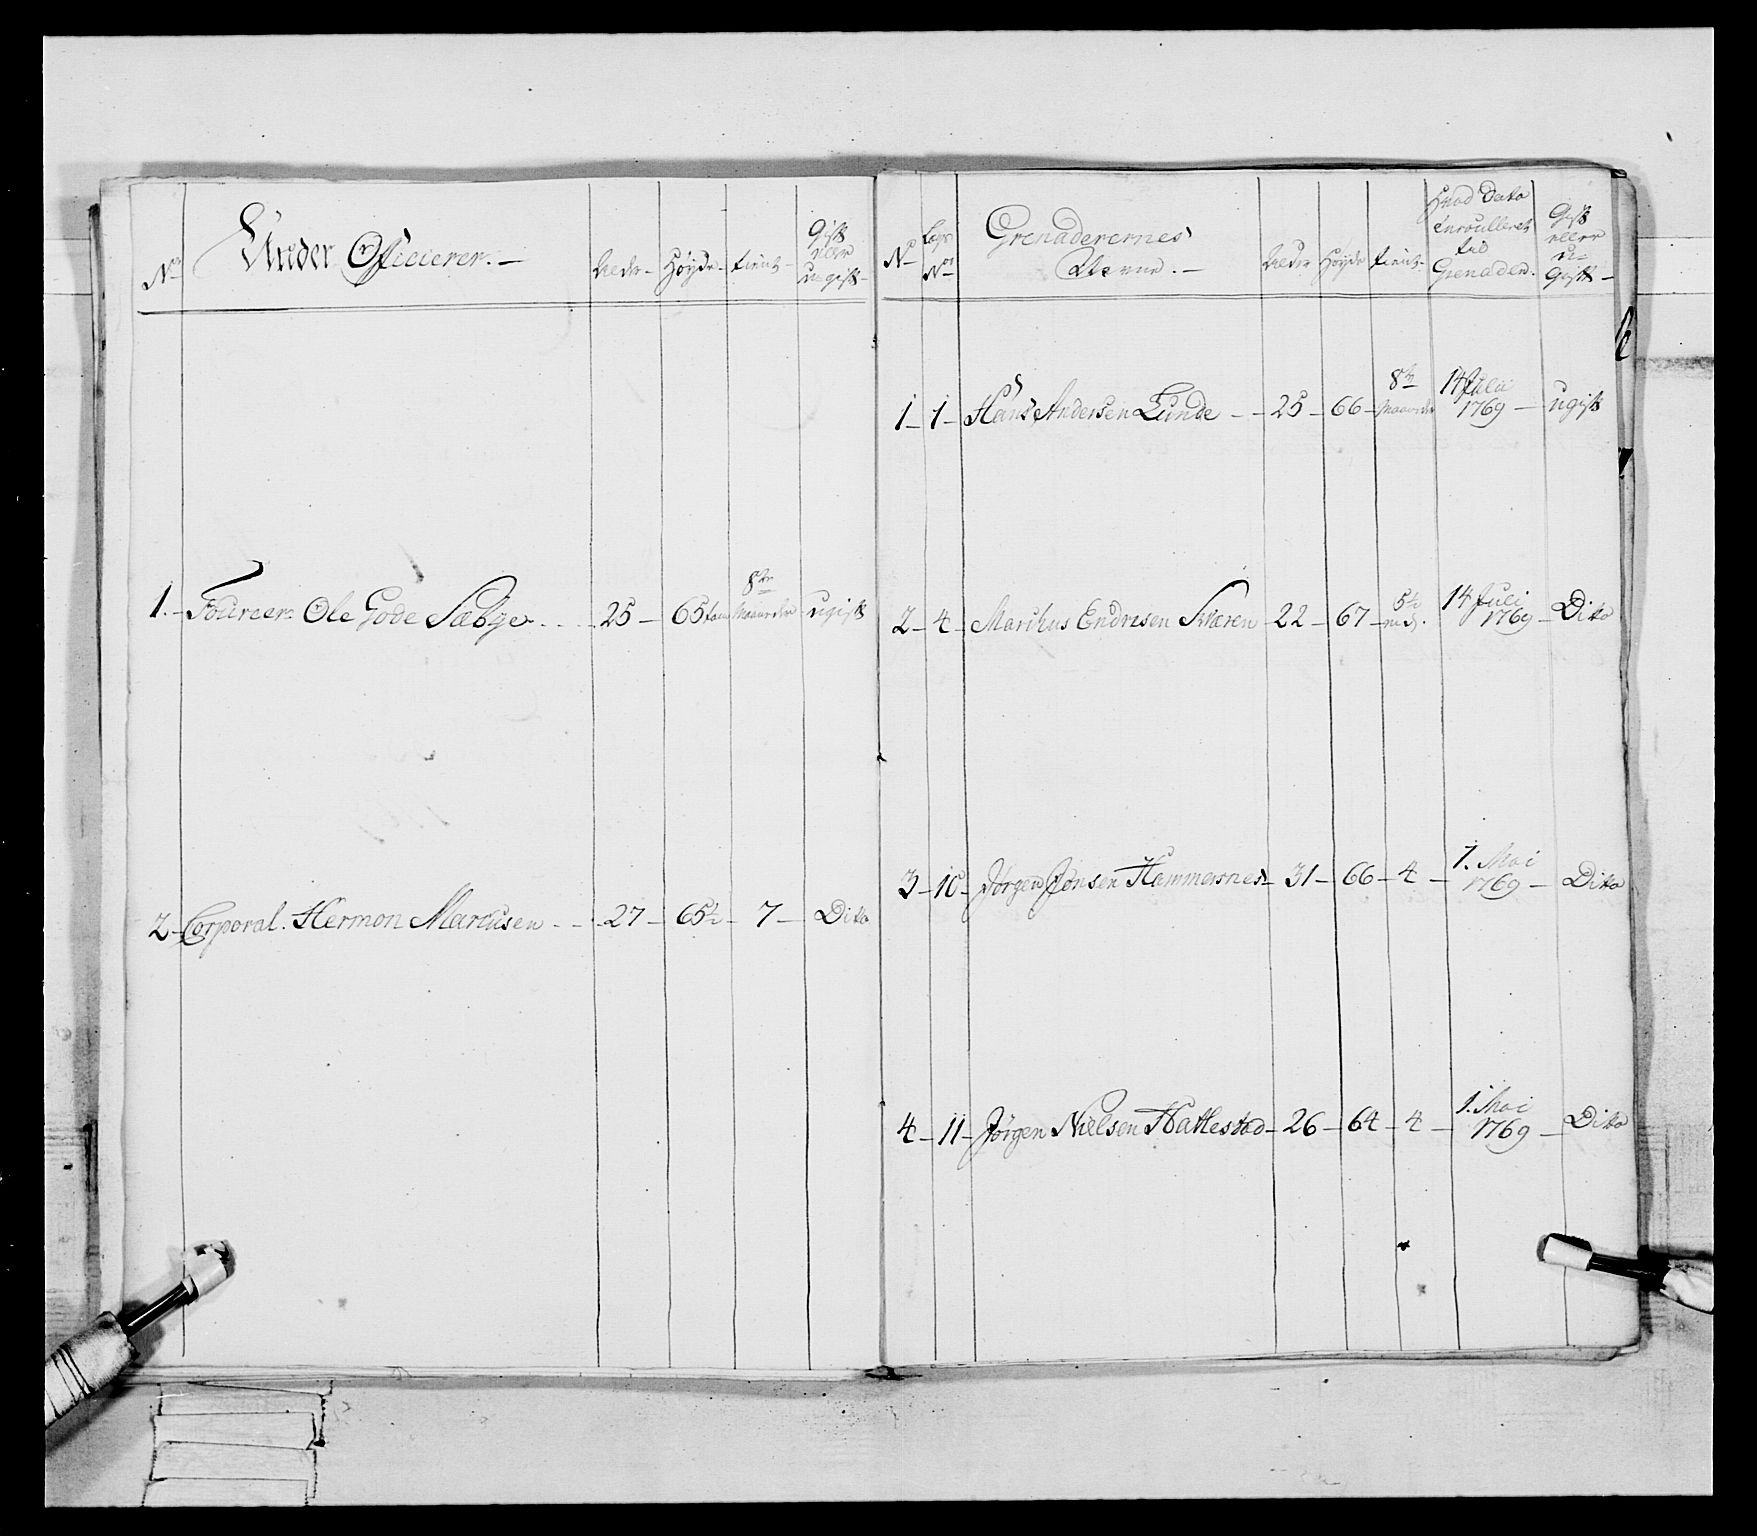 No. Under Officierer. — Alder — Høyde — tient — Gift eller ugift —
1. — Foureer Ole Gode Sæbye . . . 25 — 65 8te Maaneder — ugift
2 — Corporal. Hermon Marcusen . — 27 — 65½ — 7 — Dito
No Lægs Nos Grenaderernes Navne. — Alder Høyde tient — Hvad Dato Enroulleret til Grenader. Gift eller u- Gift —
1 — 1 — Hans Andersen Lunde — 25 — 66 — 8te Maaneder 14 Julii 1769 — ugift
2 — 4 — Marchus Endresen — 22 — 67 — 5½ 14 Juli 1769 — Dito
3 — 10 — Jørgen Jensen Hammersnes — 31 — 66 — 4 — 1. Mai 1769 — Dito
4 — 11 — Jørgen Nielsen Hattestad — 26 — 64 — 4 — 1. Mai 1769 — Dito